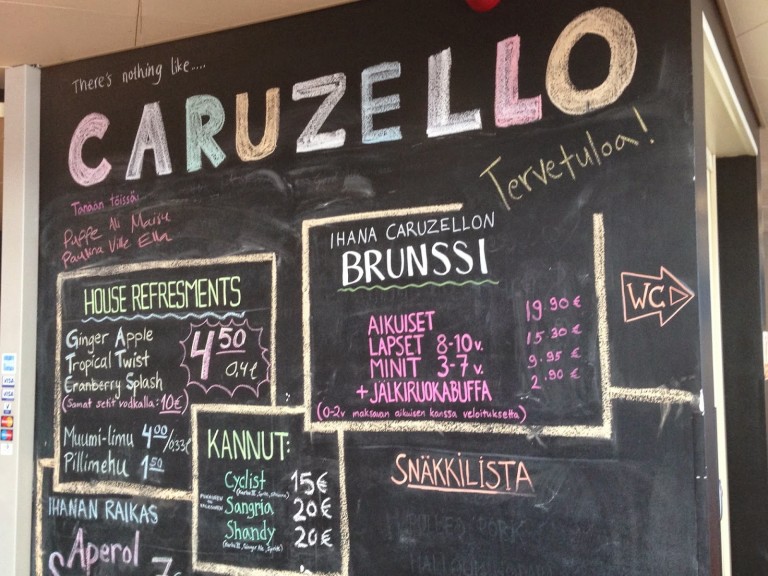 There's nothing like.....
CARUZELLO
Tervetuloa!
Tänään töissä:
Puffe Ali Maisu
Pauliina Ville Ella
HOUSE REFRESMENTS
Ginger Apple
Tropical Twist
Cranberry Splash
4 50
0,4 l
(Samat setit vodkalla: 10€)
Muumi-limu 4 00/0,33 l
Pillimehu 1 50
IHANAN RAIKAS
Aperol
KANNUT:
Cyclist 15€
Sangria 20€
Shandy 20€
IHANA CARUZELLON
BRUNSSI
AIKUISET 19.90 €
LAPSET 8-10 v. 15.30 €
MINIT 3-7 v. 9.95 €
+ JÄLKIRUOKABUFFA 2.90 €
(0-2v maksavan aikuisen kanssa veloituksetta)
WC
SNÄKKILISTA
VISA
VISA